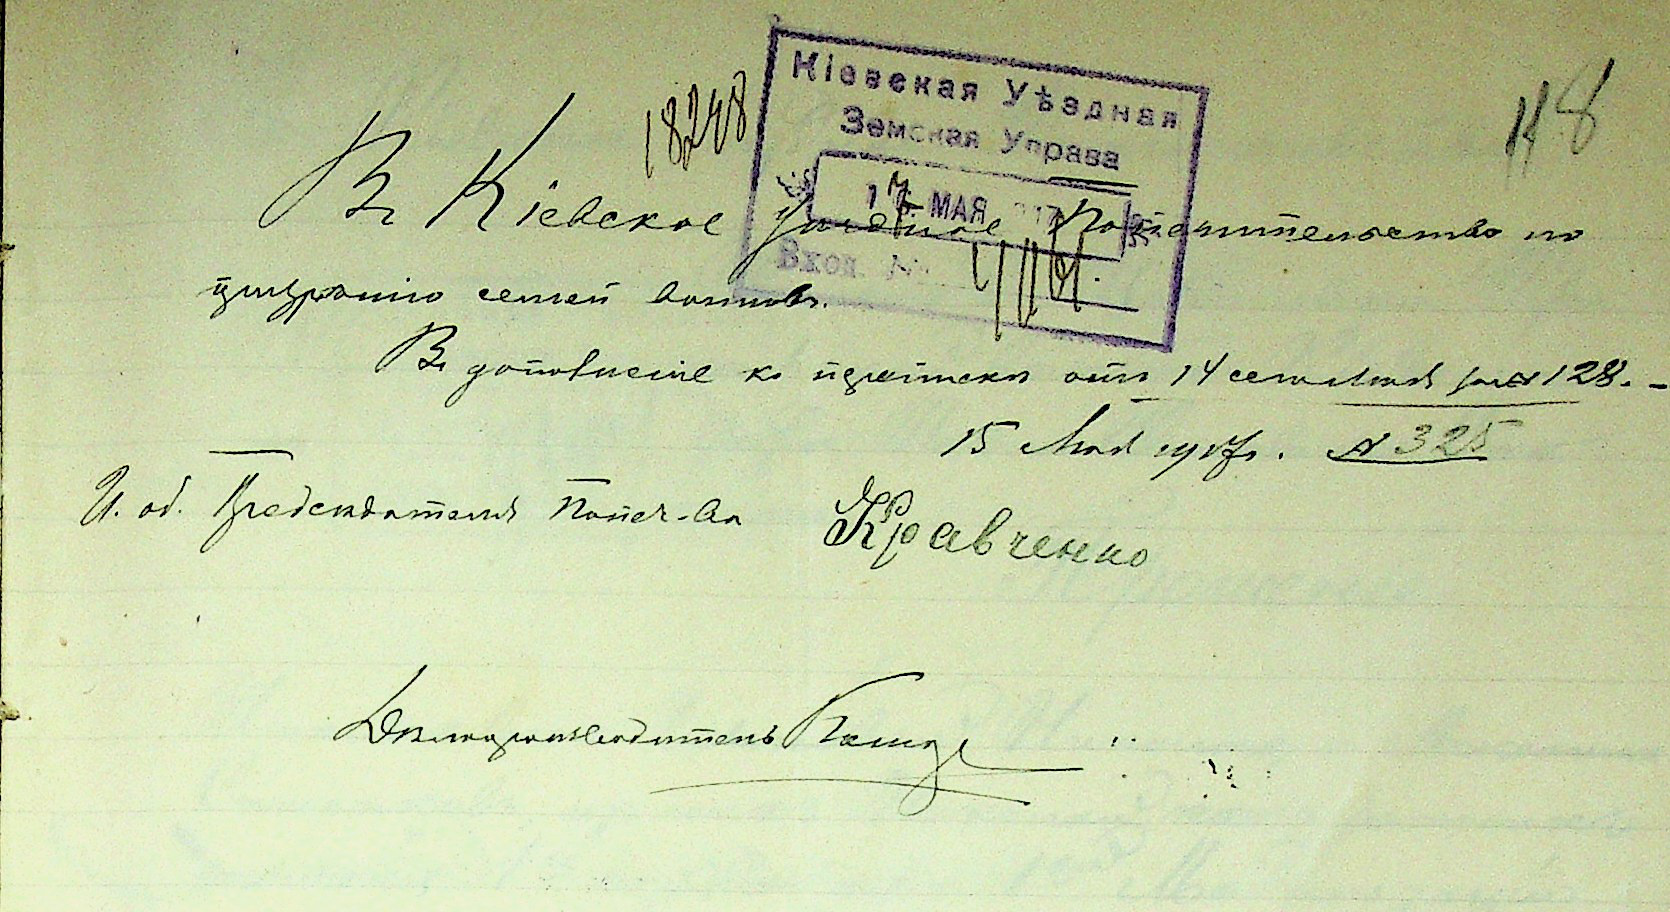 Кіевская Уѣздная
Земская Управа
17 МАЯ 1917
Вход. №
18248
118
Въ Кіевское Уѣздное Попечительство по
призрѣнію семей воиновъ.
Въ дополненіе къ перепискѣ отъ 14 сентября за № 128. -
15 Мая 1917 г. № 325
И. об. Предсѣдателя Попеч-ва Кравченко
Дѣлопроизводитель